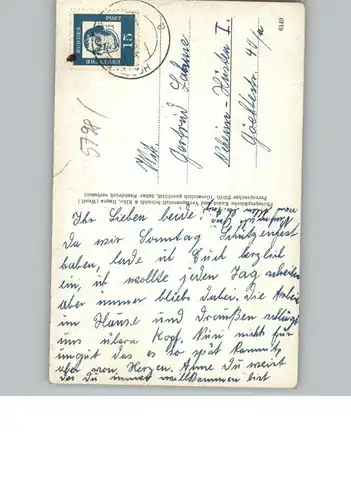 DEUTSCHE
BUNDES
POST
15
5798/
6149
Fam.
Gertrud
Rheine-
Goethestr. 40/a
Photographische Kunst- und Verlagsanstalt Schöning & Käh., Hagen (Westf.)
Fernsprecher (Gesetzlich geschützt, daher Nachdruck verboten)
Ihr Lieben beide!
Da wir Sonntag Schützenfest
haben, lade ich Euch herzlich
ein, ich wollte jeden Tag schreiben
aber immer blieb dabei. Die Arbeit
im Hause und draußen schlägt
uns übern Kopf. Nun nicht für
ungut das es so spät kommt
aber von Herzen. Änne Du weist
das du immer willkommen bist